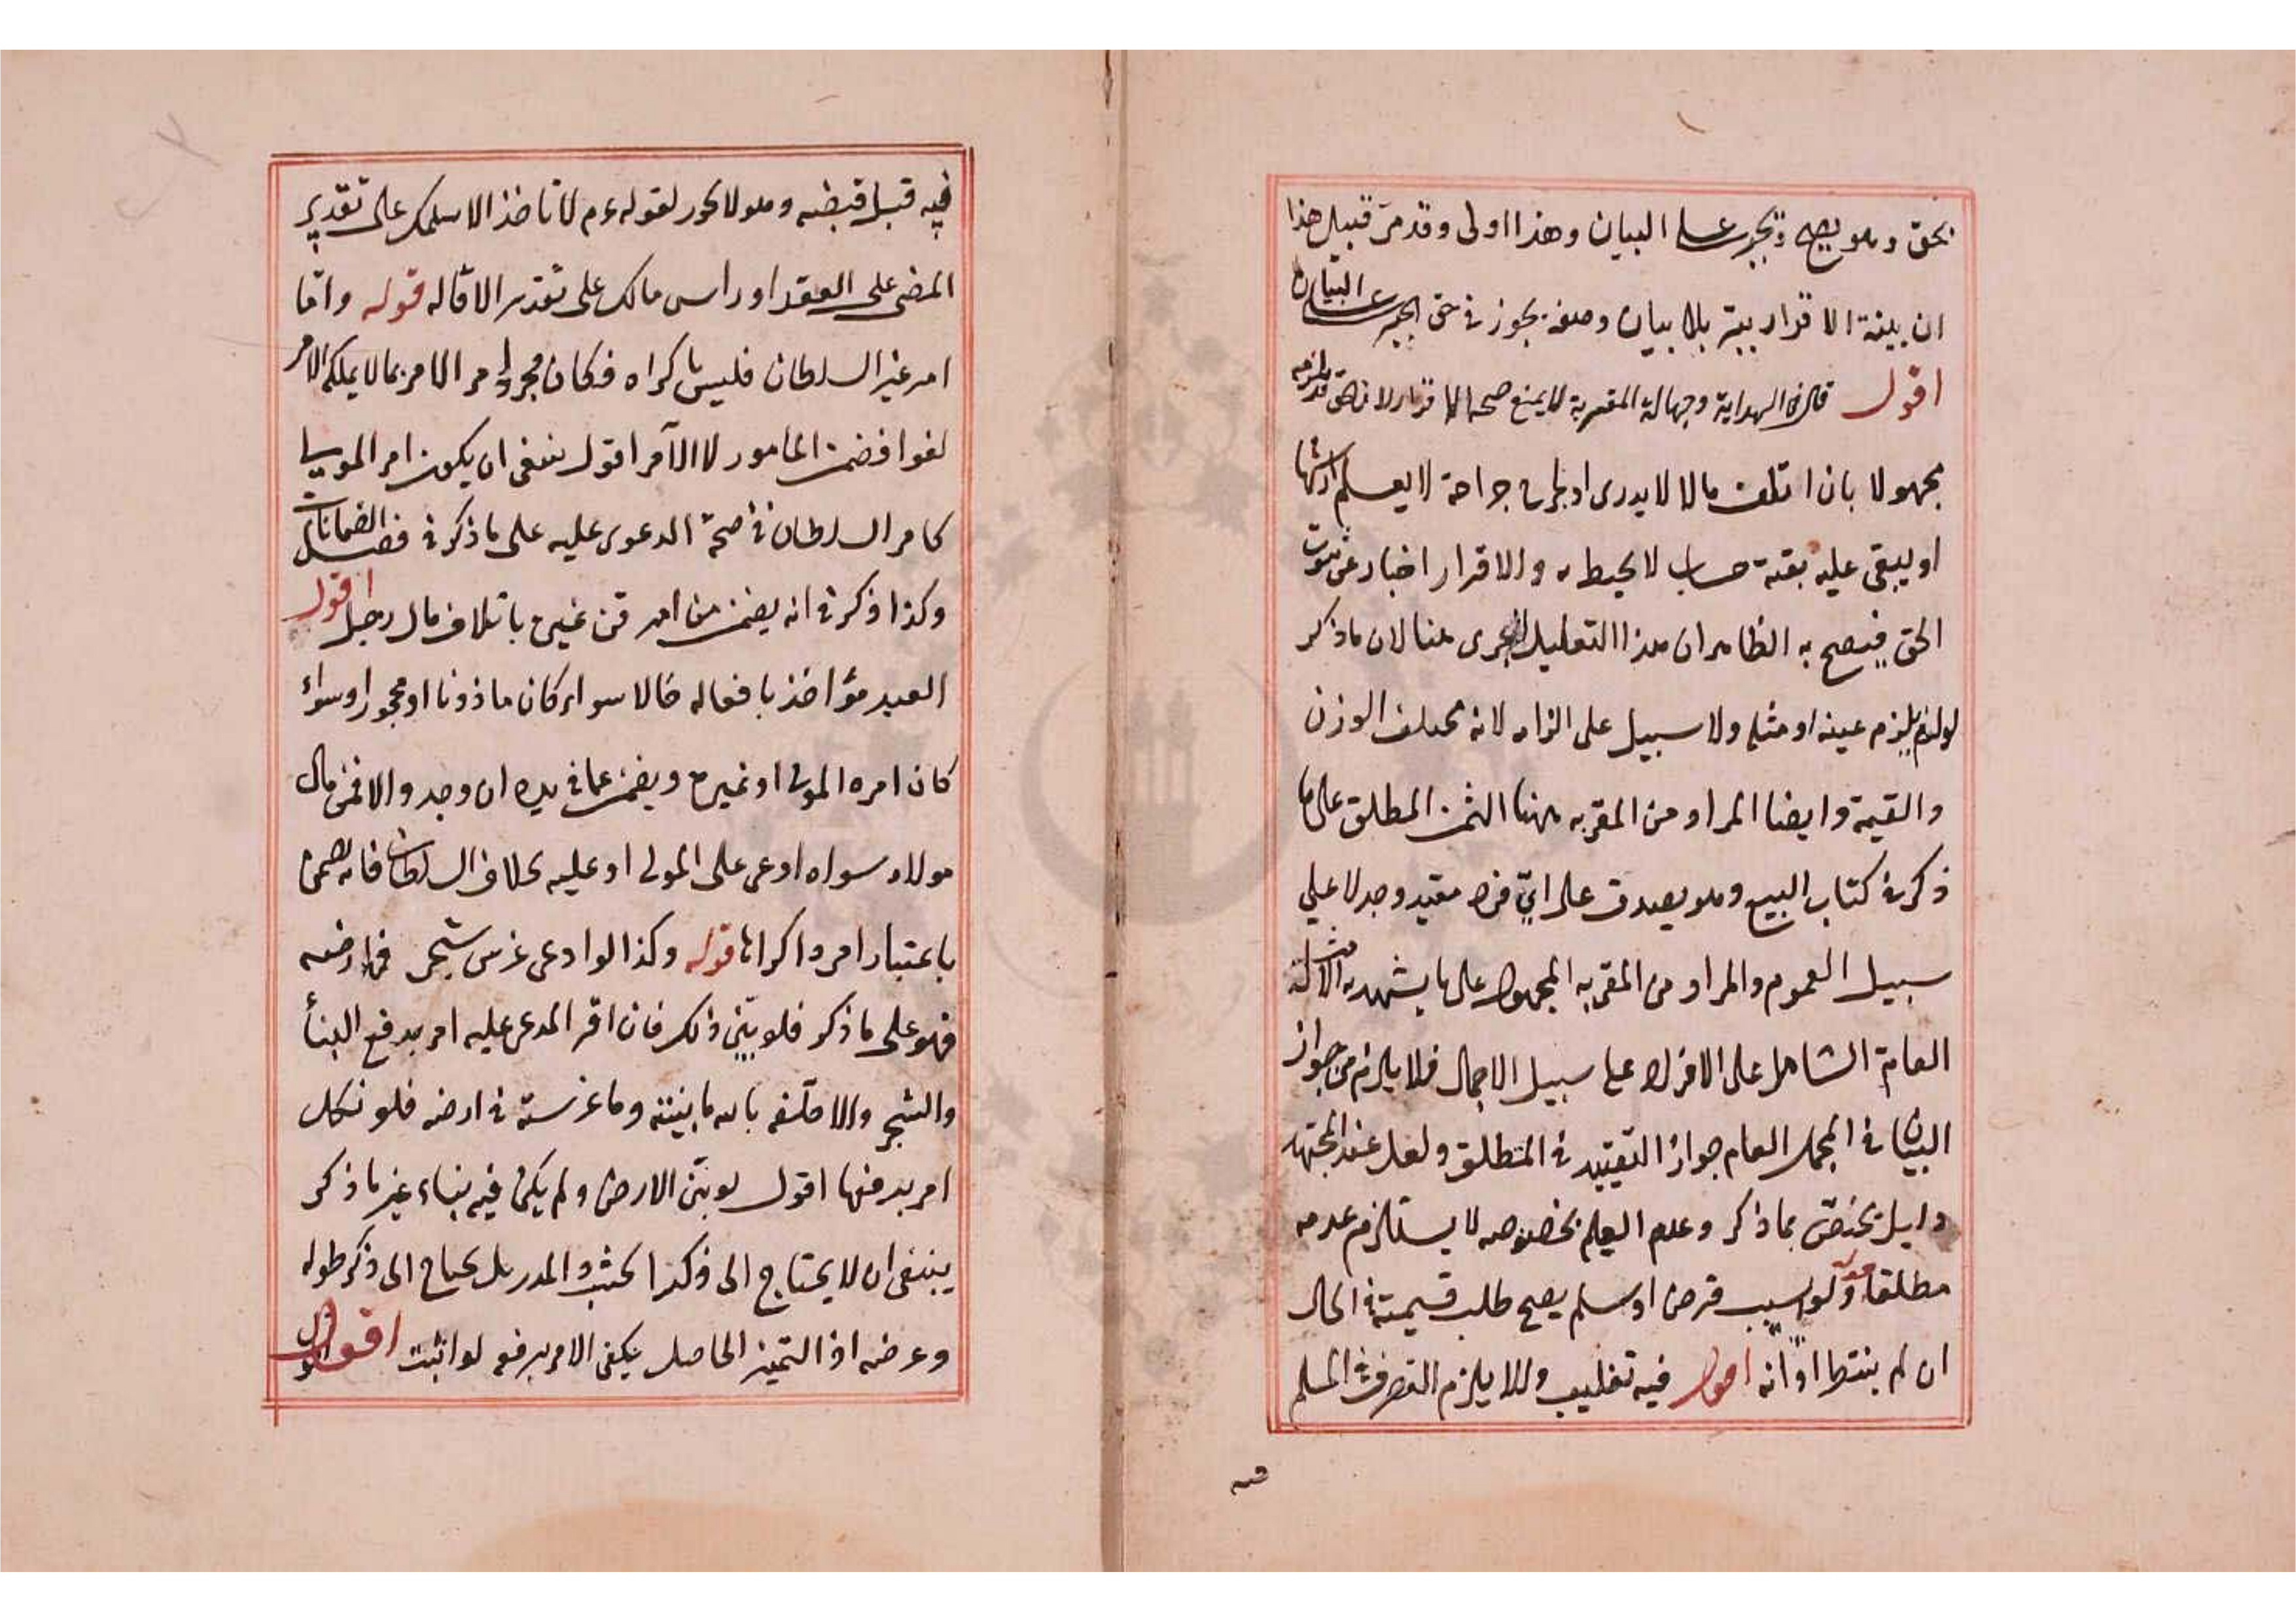 بحق وهو يصح ويجبر على البيان وهذا اولى وقد مر قبيل هذا
ان بينة الاقرار بلا بيان وصفه يجوز في حق الجبر على البيان
اقول قال في الهداية وجهالة المقر به لا يمنع صحة الاقرار لان الحق قد يلزمه
مجهولا بان اتلف مالا لا يدرى او يجرح جراحة لا يعلم ارشها
او يبقى عليه بقية حساب لا يحيط به والاقرار اخبار عن ثبوت
الحق فيصح به الظاهر ان هذا التعليل لا يجرى هنا لان ما ذكر
لو لزم يلزم عينه او مثله ولا سبيل على الزامه لانه مختلف الوزن
والقيمة وايضا المراد من المقر به ههنا الثمن المطلق على ما
ذكر في كتاب البيع وهو يصدق على اي فرد مقيد وجد لا على
سبيل العموم والمراد من المقر به المجهول على ما يشهد به الامثلة
العام الشامل على الافراد على سبيل الاجمال فلا يلزم من جواز
البيان في المجمل العام جواز التقييد في المطلق ولعل عند المجتهد
دليل يختص بما ذكر وعدم العلم بخصوصه لا يستلزم عدمه
مطلقا قوله ولو بسبب قرض او سلم يصح طلب قيمته في الحال
ان لم ينقطع اوانه اقول فيه تغليب والا يلزم التصرف في المسلم
فيه قبل قبضه وهو لا يجوز لقوله عم لا تاخذ الا سلمك على تقدير
المضى على العقد او راس مالك على تقدير الاقالة قوله واما
امر غير السلطان فليس باكراه فكان مجرد امر الامر بما لا يملكه الامر
لغوا فضمن المامور لا الآمر اقول ينبغى ان يكون امر المولى
كامر السلطان في صحة الدعوى عليه على ما ذكر في فصل الضمانات
وكذا ذكر في انه يضمن من امر قن غيره باتلاف مال رجل اقول
العبد مؤاخذ بافعاله حالا سواء كان ماذونا او محجورا وسواء
كان امره المولى او غيره ويضمن عما في يده ان وجد والا فمن مال
مولاه سواء ادعى على المولى او عليه بخلاف السلطان فانه يضمن
باعتبار امره اكراها قوله وكذا لو ادعى غرس شجر في ارضه
فهو على ما ذكر فلو بين ذلك فان اقر المدعى عليه امر بدفع البناء
والشجر والا حلفه بالله ما بنيته وما غرسته في ارضه فلو نكل
امر بدفعها اقول لو بين الارض ولم يكن فيه بناء غير ما ذكر
ينبغى ان لا يحتاج الى ذكر الخشب والمدر بل يحتاج الى ذكر طوله
وعرضه اذ التميز الحاصل يكفى الامر برفعه لو اثبت اقول